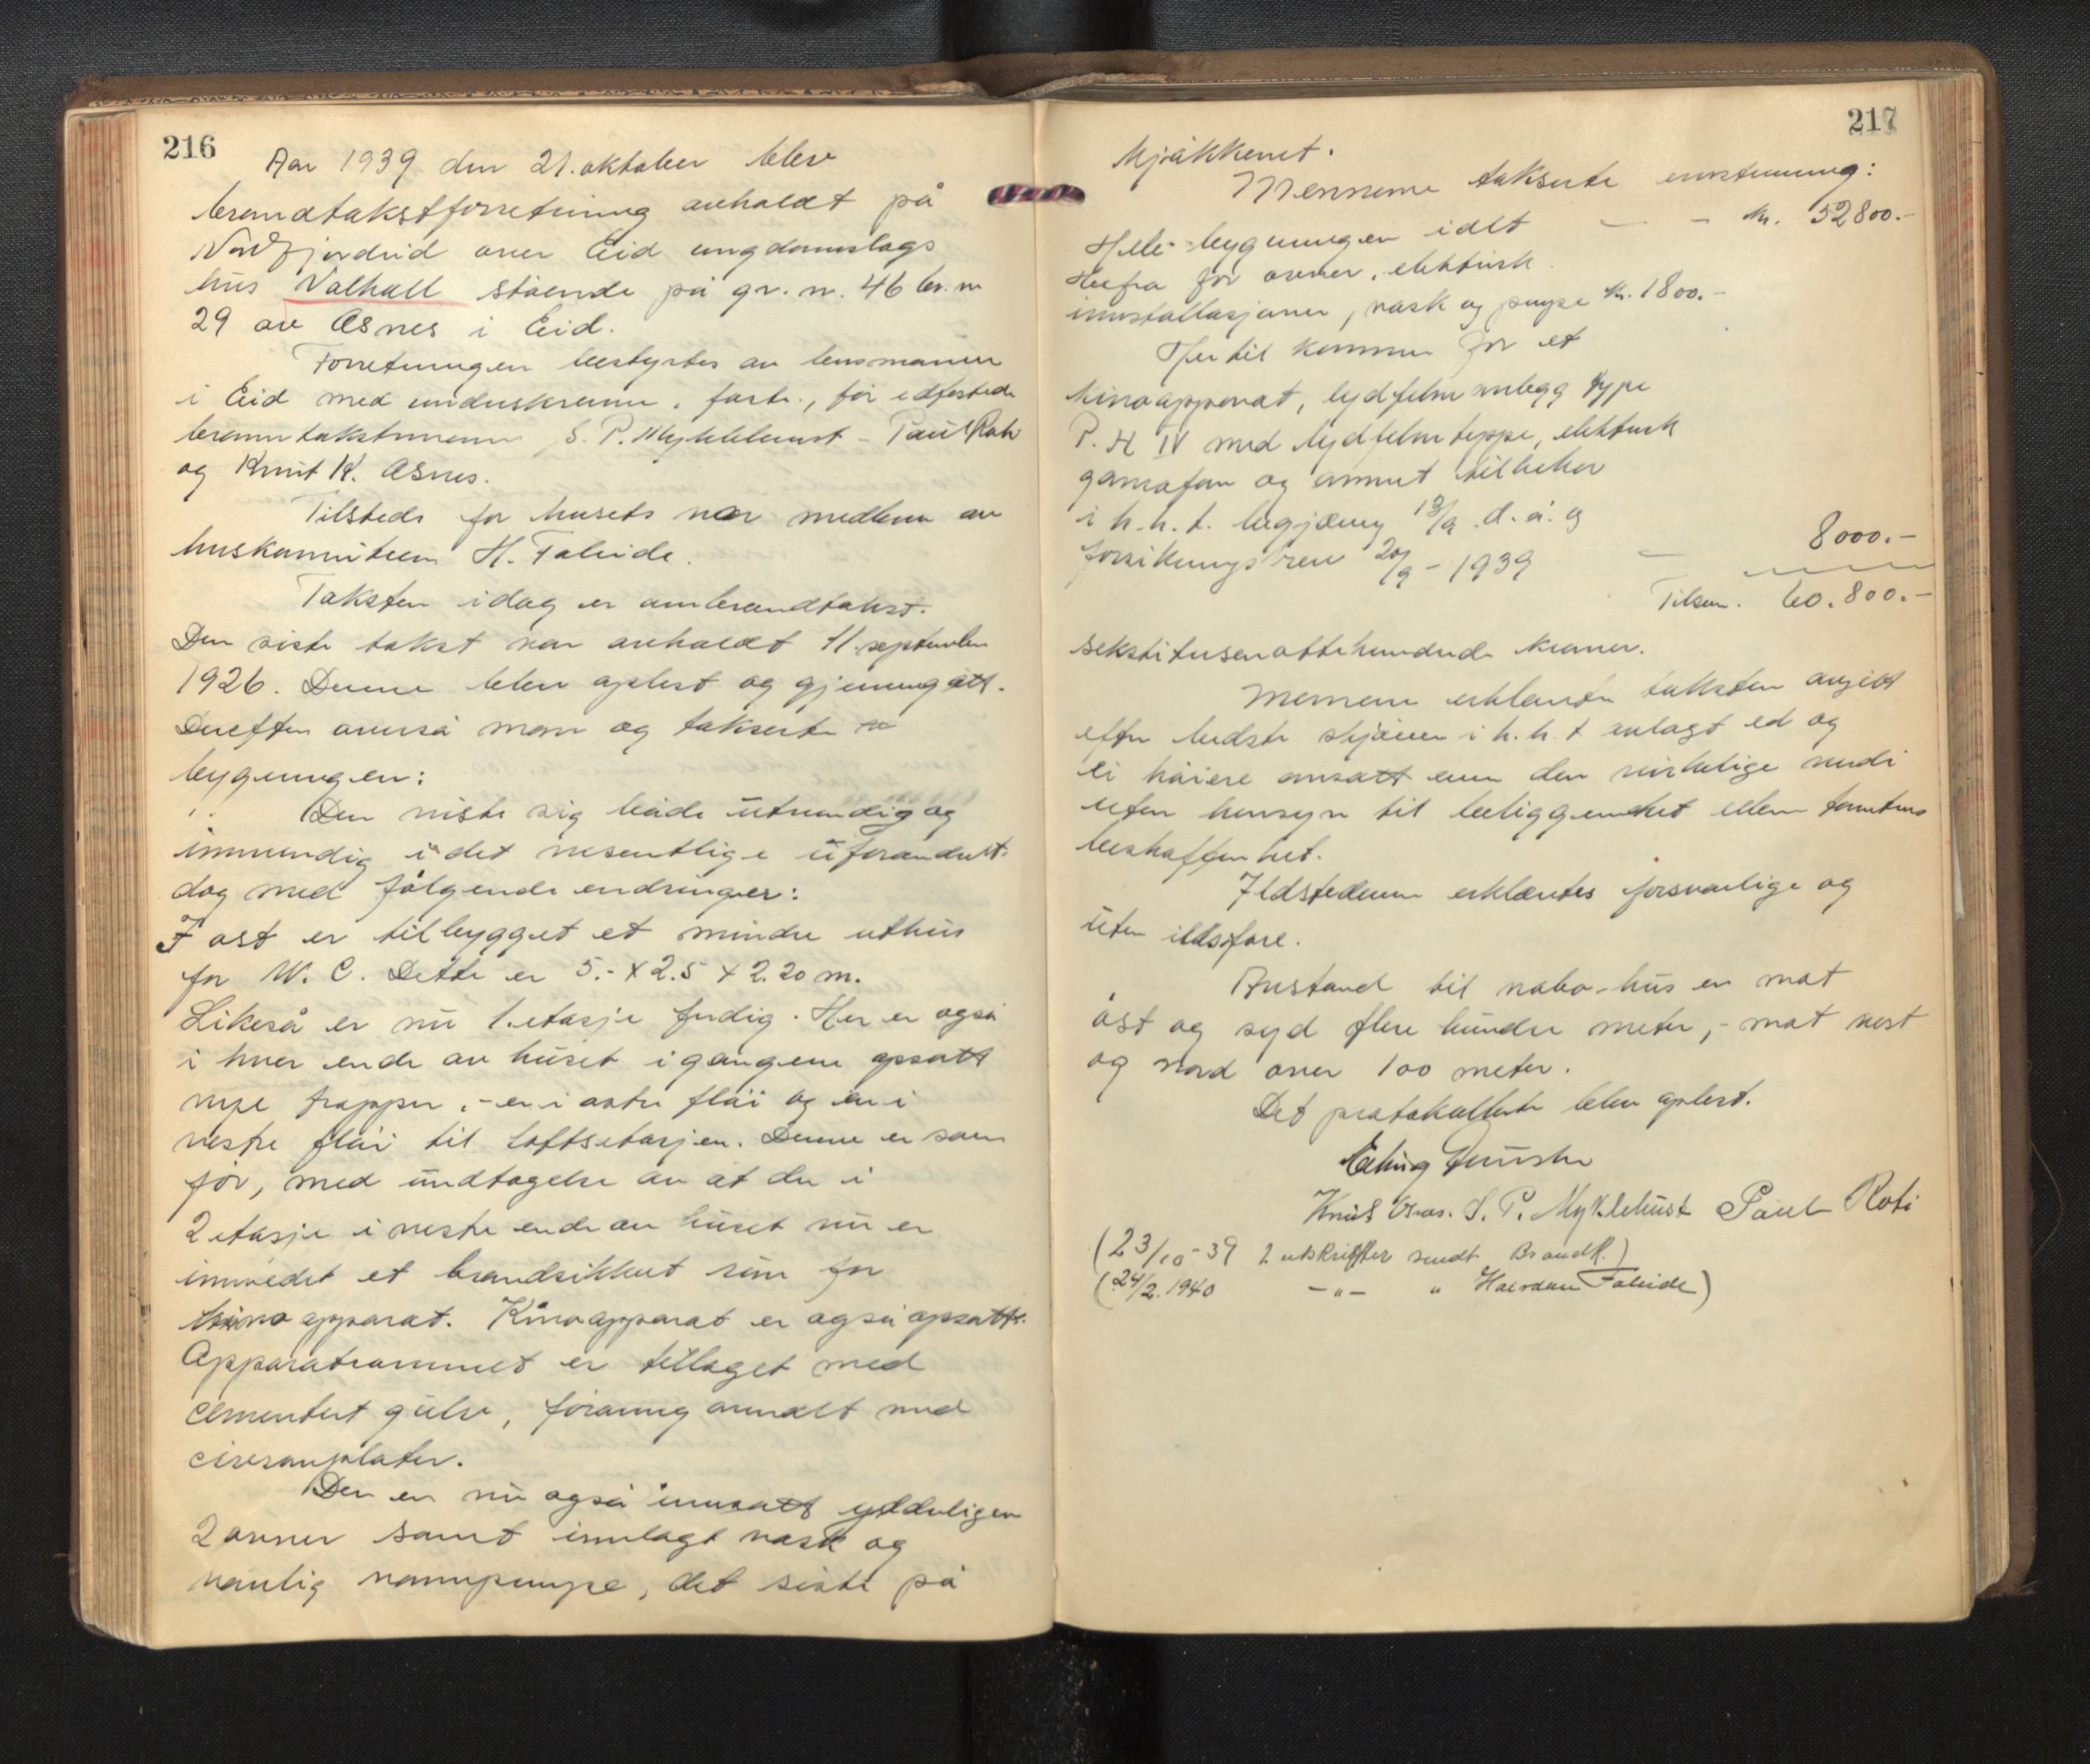 216
Aar 1939 den 21. oktober blev
brandtakstforretning avholdt på
Nordfjordeid over Eid ungdomslags
hus Valhall stående på gr. n. 46 br. n
29 av Æsnes i Eid.
Forretningen bestyrtes av lensmannen
i Eid med underskrevne, fortr., for edfestede
branntakstmenn S. P. Myklebust - Paul Roti
og Knut K. Æsnes.
Tilstede for husets var medlem av
huskomiteen H. Faleide.
Taksten idag er ombrandtakst.
Den siste takst var avholdt 11. september
1926. Denne blev oplest og gjenengått.
Derefter overså man og takserte
bygningen:
Den viste sig både utvendig og
innvendig i det vesentlige uforandret.
dog med følgende endringer:
I ost er tilbygget et mindre uthus
for W. C. Dette er 5.- x 2.5 x 2.20 m.
Likeså er nu 1. etasje ferdig. Her er også
i hver ende av huset i gangene opsatt
nye trapper, - en i østre fløi og en i
vestre fløi til loftsetasjen. Denne er som
før, med undtagelse av at der i
2 etasje i vestre ende av huset nu er
innredet et brandsikkert rum for
kino apparat. Kinoapparat er også opsatt.
Apparatrommet er tillaget med
cementert gulv, foraning omalt med
plater.
Der er nu også innsatt ydderligere
2 ovner samt innlagt vask og
vanlig vannpumpe, det siste på
217
kjøkkenet.
Mennene takserte enstemmig:
Hele bygningen idet - - kr. 52800.-
Herfra for ovner, elektrisk
innstallasjoner, vask og pumpe kr. 1800.-
Hertil kommer for et
kinoapparat, lydfilm anlegg type
P. H IV med lydfilm teppe, elektrisk
gramofon og annet tilbehør
i h. h. t. begjæring 13/9 d. å. og
forsikringsbrev 20/9 - 1939 - 8000.-
Tilsam. 60.800.-
sekstitusenottehundrede kroner.
Mennene erklærte taksten avgitt
efter bedste skjønn i h. h. t avlagt ed og
ei høiere ansatt enn den virkelige verdi
uten hensyn til beliggenhet eller tomtens
beskaffenhet.
Ildstedene erklærtes forsvarlige og
uten ildsfare.
Avstand til nabo-hus er mot
ost og syd flere hundre meter, - mot vest
og nord over 100 meter.
Det protokollerte blev oplest.
Knut Æsnes. S. P. Myklebust Paul Roti
(23/10 - 39 2 utskrifter sendt Brandk.)
(24/2. 1940 - " - " Halvdan Faleide)